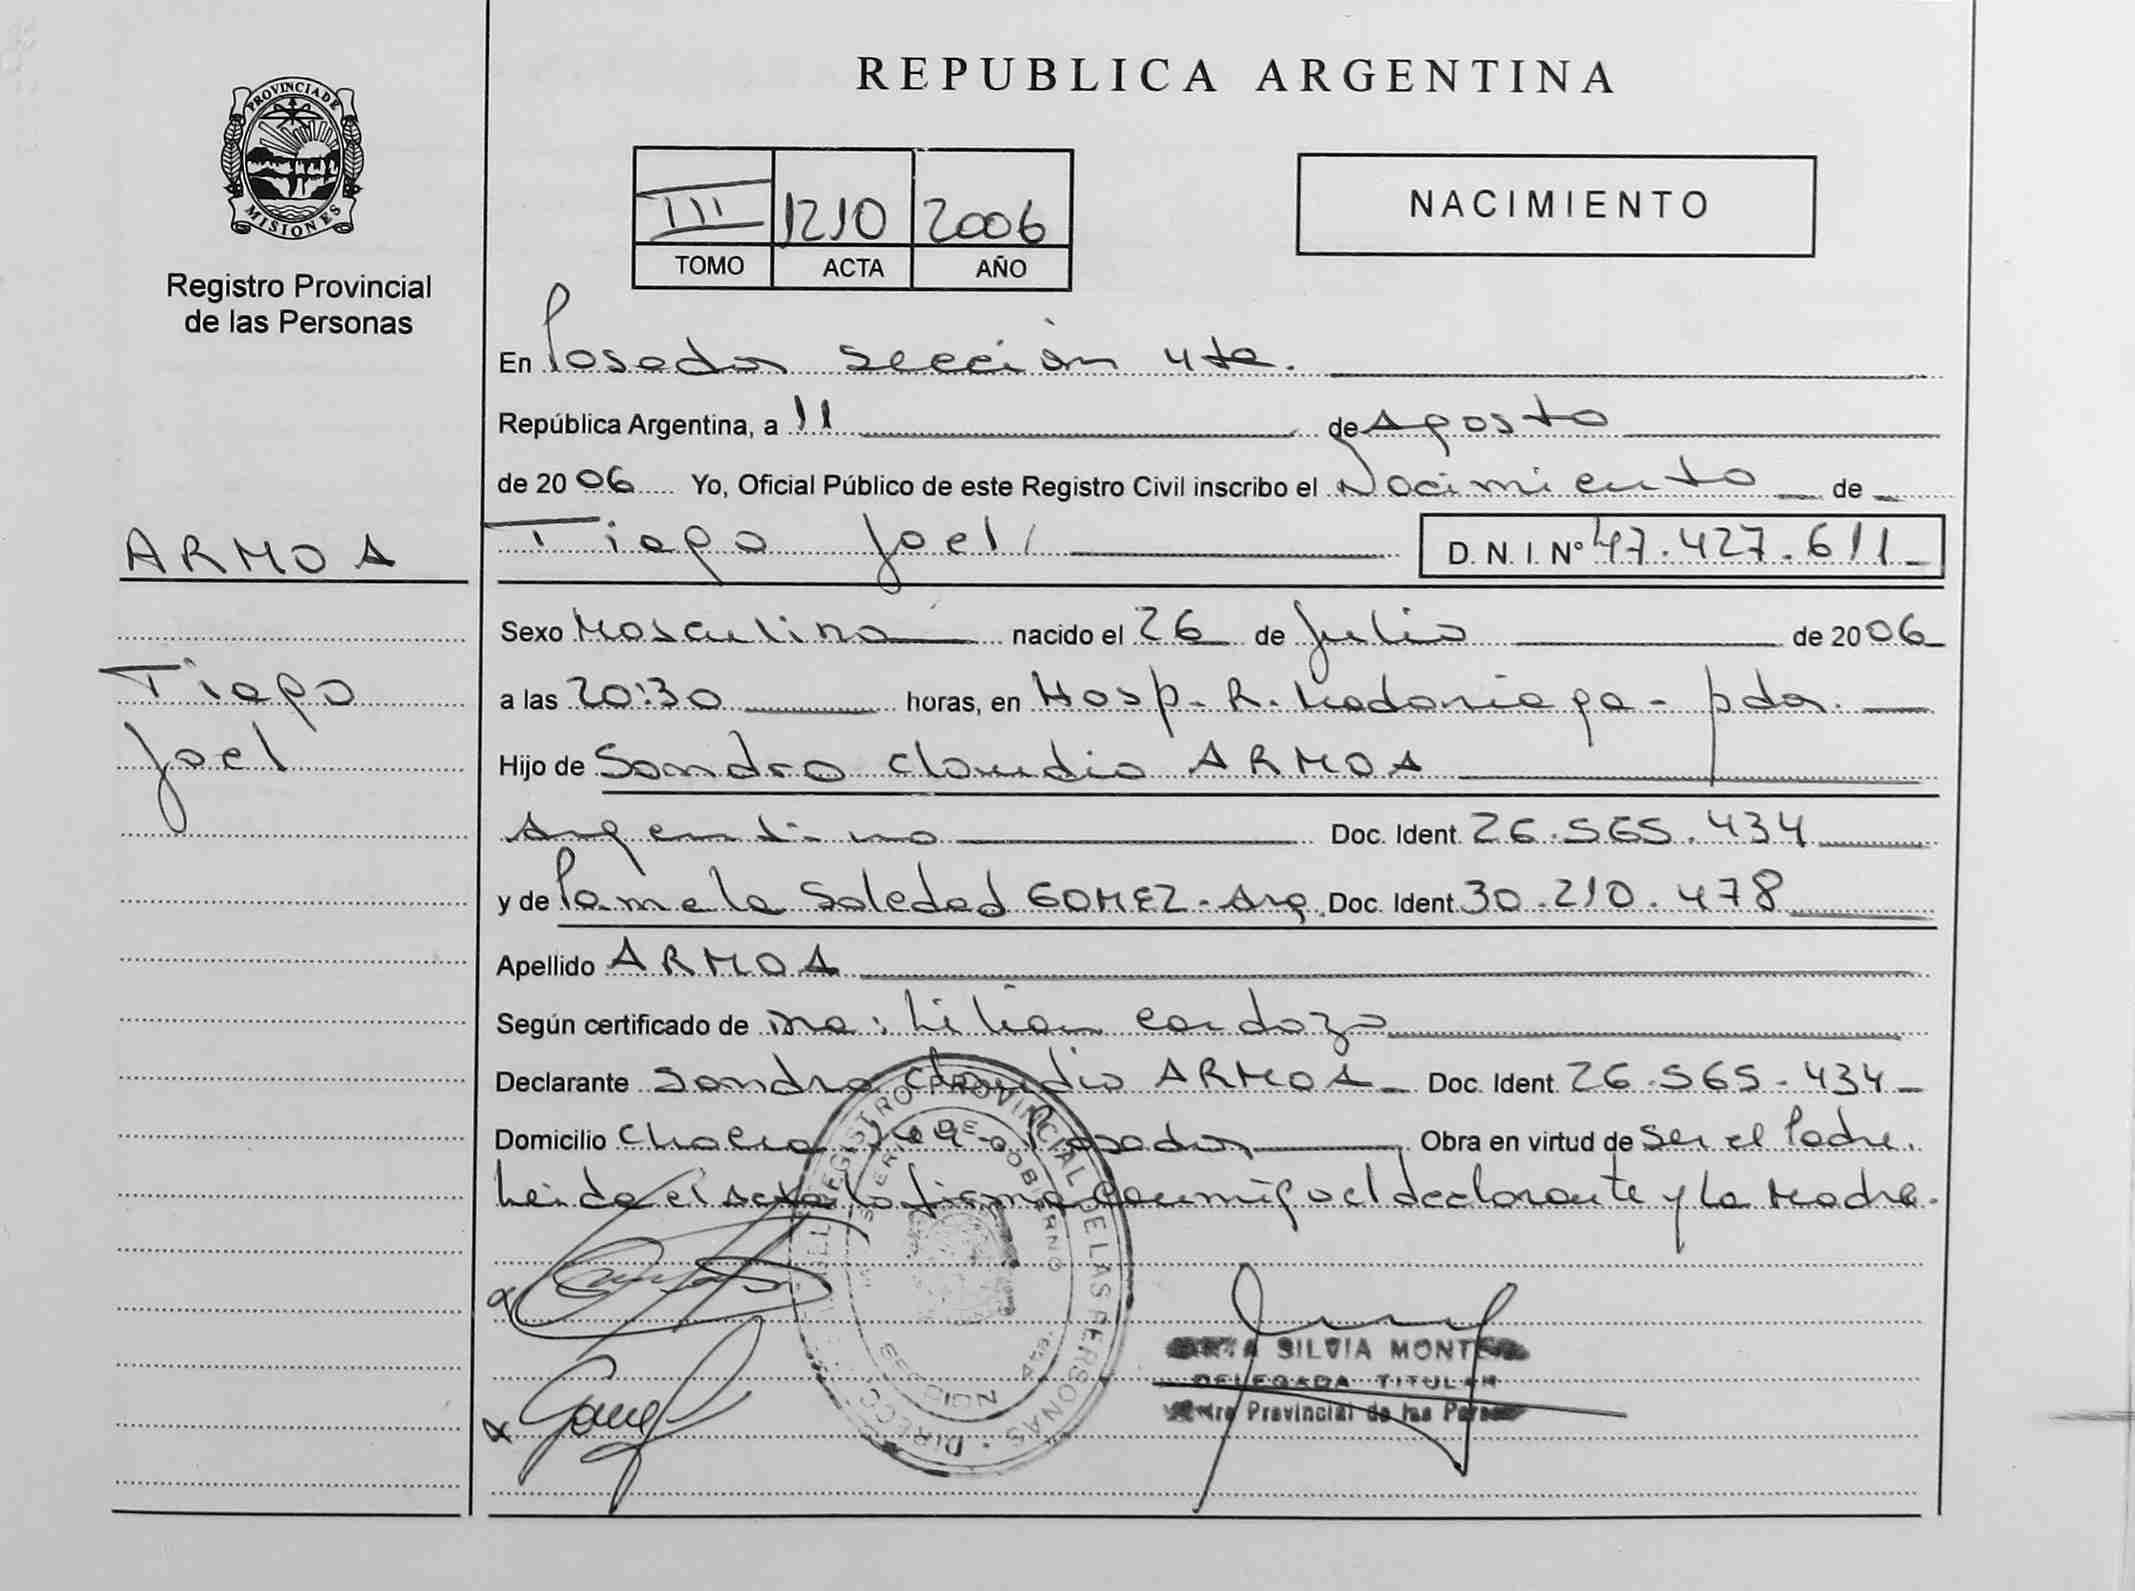 PROVINCIA DE
MISIONES
Registro Provincial
de las Personas
REPUBLICA ARGENTINA
III 1210 2006
TOMO ACTA AÑO
NACIMIENTO
En Posadas sección 4ta.
República Argentina, a 11 de Agosto
de 2006 Yo, Oficial Público de este Registro Civil inscribo el Nacimiento de
ARMOA
Tiago Joel D. N. I. Nº 47.427.611
Sexo Masculino nacido el 26 de Julio de 2006
Tiago
a las 20:30 horas, en Hosp. R. Madariaga - pdas.
Joel
Hijo de Sandro Claudio ARMOA
Argentino Doc. Ident. 26.565.434
y de Pamela Soledad GOMEZ - Arg. Doc. Ident. 30.210.478
Apellido ARMOA
Según certificado de Lilian Cardozo
Declarante Sandro Claudio ARMOA Doc. Ident. 26.565.434
Domicilio Chacra Posadas Obra en virtud de ser el Padre.
Leida el acta la firma conmigo el declarante y la Madre.
REGISTRO PROVINCIAL DE LAS PERSONAS
DE GOBIERNO
SECCION
SILVIA
DELEGADA TITULAR
Provincial de las